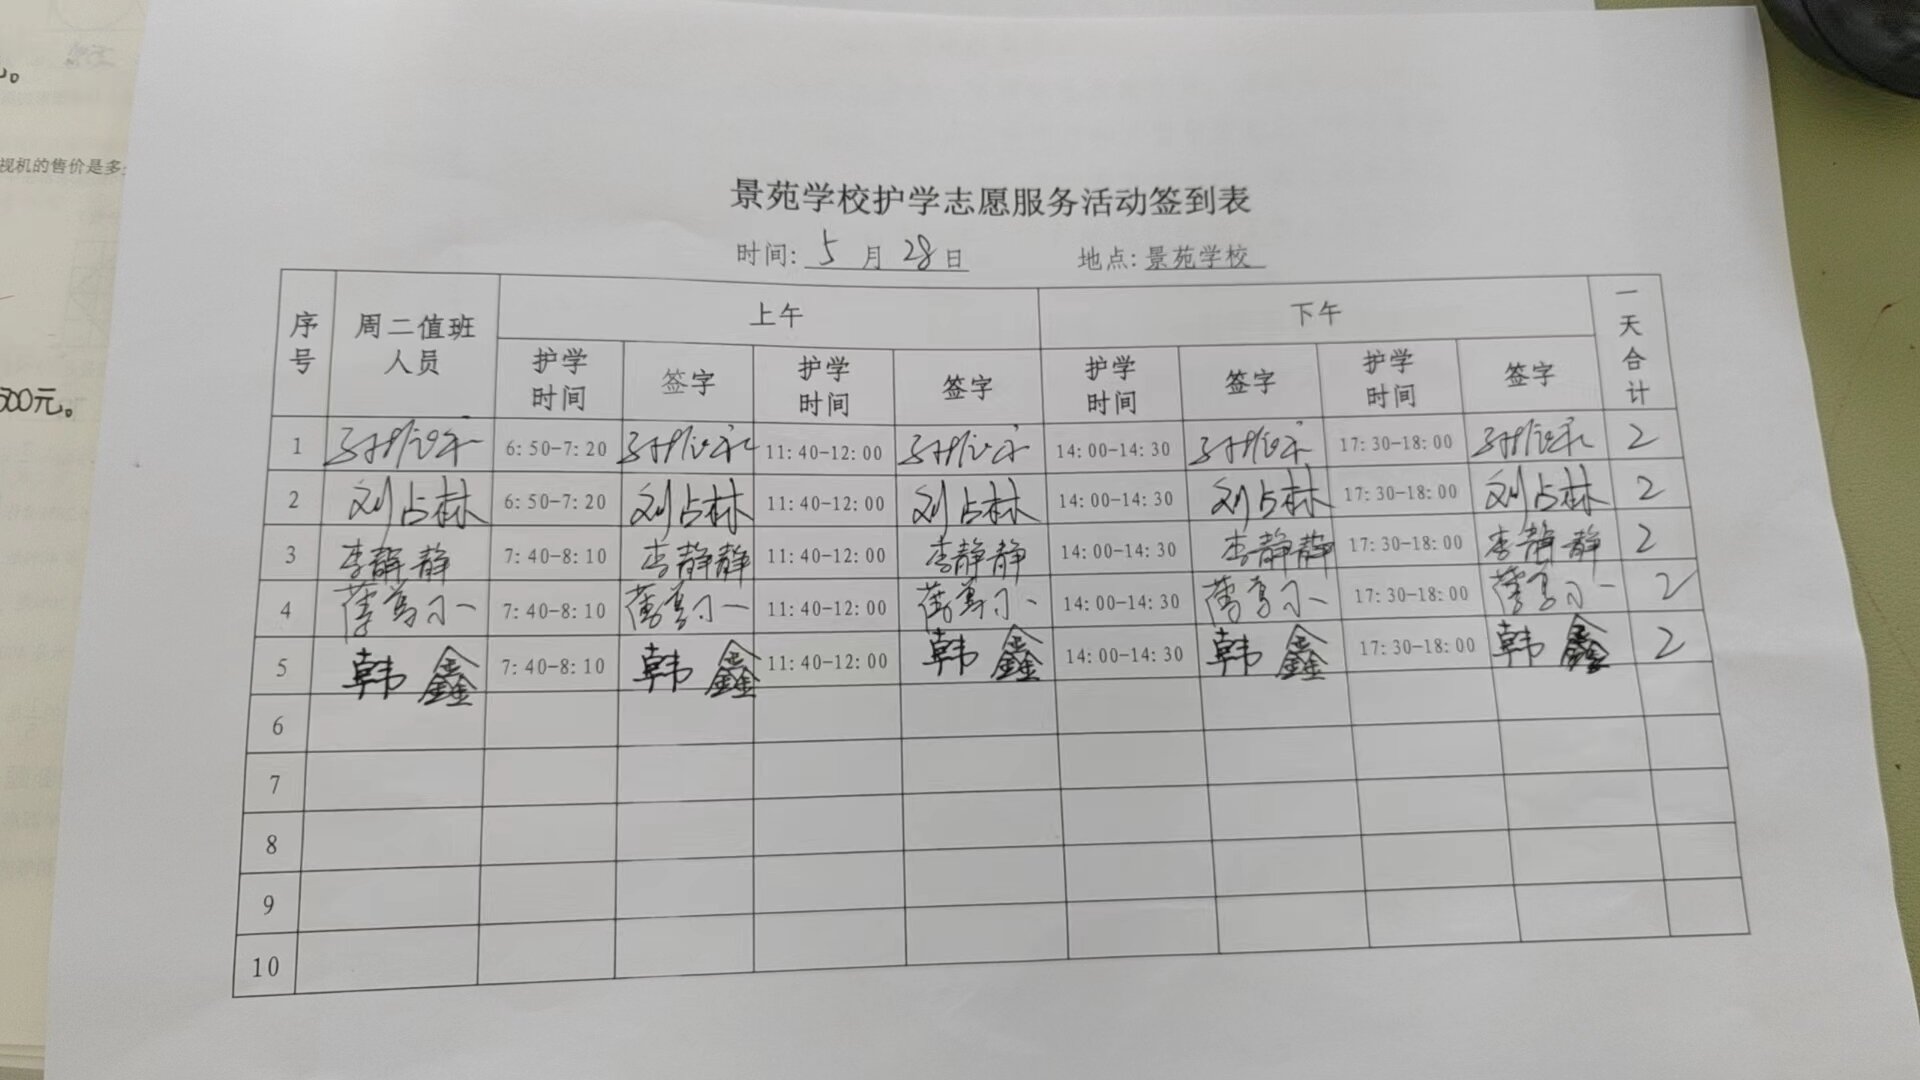 视机的售价是多
500元。
景苑学校护学志愿服务活动签到表
时间: 5 月 28 日 地点: 景苑学校
序号 周二值班人员 上午 下午 一天合计
护学时间 签字 护学时间 签字 护学时间 签字 护学时间 签字
1 6:50-7:20 11:40-12:00 14:00-14:30 17:30-18:00 2
2 刘占林 6:50-7:20 刘占林 11:40-12:00 刘占林 14:00-14:30 刘占林 17:30-18:00 刘占林 2
3 李静静 7:40-8:10 李静静 11:40-12:00 李静静 14:00-14:30 李静静 17:30-18:00 李静静 2
4 7:40-8:10 11:40-12:00 14:00-14:30 17:30-18:00 2
5 韩鑫 7:40-8:10 韩鑫 11:40-12:00 韩鑫 14:00-14:30 韩鑫 17:30-18:00 韩鑫 2
6
7
8
9
10